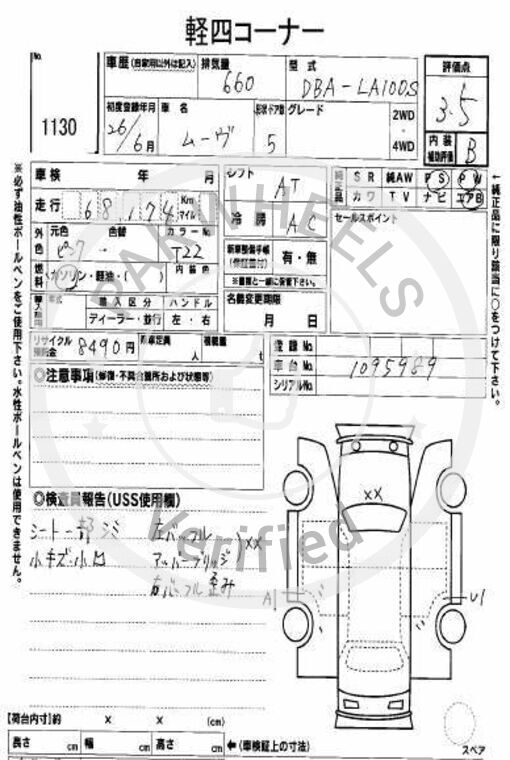 軽四コーナー
No.
1130
車歴(自家用以外は記入)
排気量
660
型式
DBA-LA100S
評価点
3.5
初度登録年月
26/6月
車名
ムーヴ
ドア数
5
グレード
2WD
4WD
内装
補助評価
B
車検 年 月
シフト
AT
SR 純AW PS PW
カワ TV ナビ エアB
走行
68,174
Km
マイル
冷房
AC
セールスポイント
外色
元色
色替
カラーNo
ピンク
T22
(保証書付)
有・無
燃料
ガソリン・軽油・( )
内装色
※書類と一緒に御書下さい。
名義変更期限
月 日
輸入区分
ハンドル
ディーラー・並行
左・右
リサイクル
預託金
8490円
乗車定員
人
積載量
t
登録No
車台No
1095989
シリアルNo
◎注意事項(修復・不具合箇所および状態等)
◎検査員報告(USS使用欄)
シート一部シミ
小キズ・小凹
XX
XX
A1
U1
※必ず油性ボールペンをご使用下さい。水性ボールペンは使用できません。
←純正品に限り該当に○をつけて下さい。
【荷台内寸】約 × × (cm)
長さ cm 幅 cm 高さ cm
←(車検証上の寸法)
スペア
PAKWHEELS
Verified